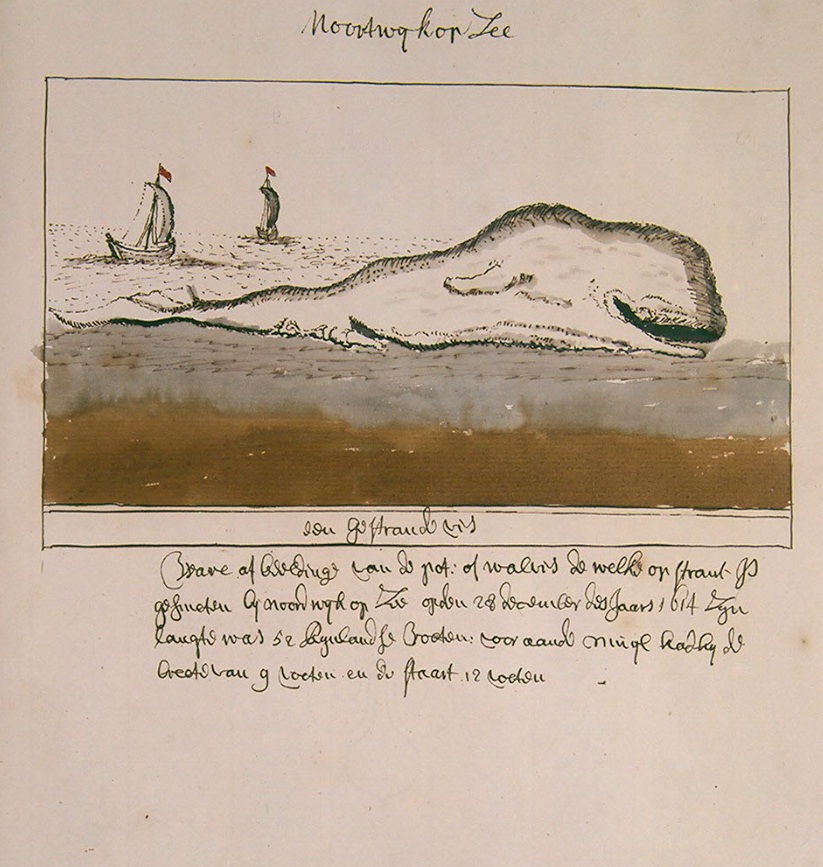 Noortwyk op Zee
een gestrande vis
Ware af beeldinge van de pot: of walvis de welke op strant Js
gesmeten by noordwyk op Zee op den 28 december des Jaars 1614 Zyn
langte was 52 Rynlandse Voeten: voor aande muyl had hy de
breete van 9 voeten en de staart 12 voeten